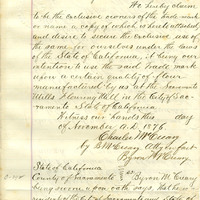 We hereby claim
to be the exclusive owners of the trade mark
or name a copy of which is hereunto
and desire to secure the exclusive use of
the same for ourselves under the laws
of the State of California, it being our
intention to use the said trade mark
upon a certain quality of flour
manufactured by us at the
Mills Flouring Mill in the City of Sacra-
mento State of California
Witness our hands this day
of November A.D. 1876.
Charles McCreary
by B McCreary Atty in fact
Byron McCreary
State of California
County of Sacramento ss Byron McCreary
being sworn upon oath says that he is